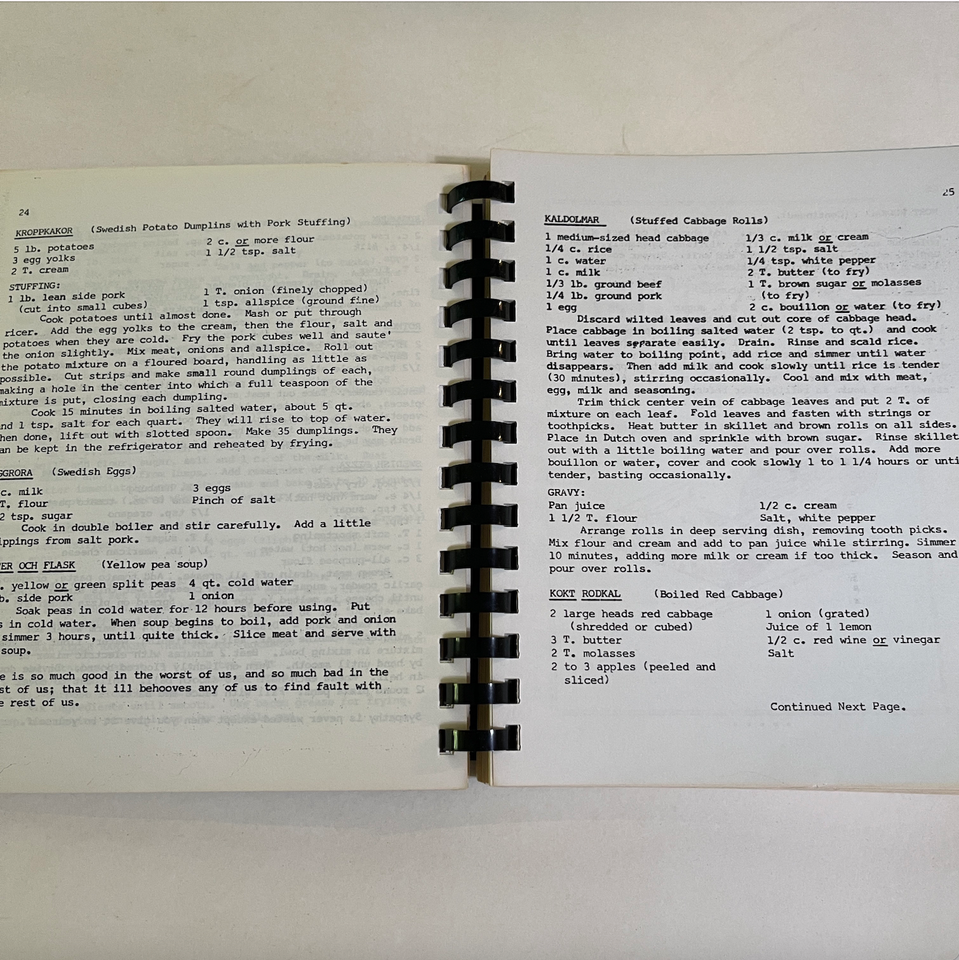 24
KROPPKAKOR (Swedish Potato Dumplins with Pork Stuffing)
5 lb. potatoes 2 c. or more flour
3 egg yolks 1 1/2 tsp. salt
2 T. cream
STUFFING:
1 lb. lean side pork 1 T. onion (finely chopped)
(cut into small cubes) 1 tsp. allspice (ground fine)
Cook potatoes until almost done. Mash or put through
ricer. Add the egg yolks to the cream, then the flour, salt and
potatoes when they are cold. Fry the pork cubes well and saute'
the onion slightly. Mix meat, onions and allspice. Roll out
the potato mixture on a floured board, handling as little as
possible. Cut strips and make small round dumplings of each,
making a hole in the center into which a full teaspoon of the
mixture is put, closing each dumpling.
Cook 15 minutes in boiling salted water, about 5 qt.
nd 1 tsp. salt for each quart. They will rise to top of water.
hen done, lift out with slotted spoon. Make 35 dumplings. They
an be kept in the refrigerator and reheated by frying.
GGRORA (Swedish Eggs)
c. milk 3 eggs
T. flour Pinch of salt
2 tsp. sugar
Cook in double boiler and stir carefully. Add a little
ippings from salt pork.
ER OCH FLASK (Yellow pea soup)
. yellow or green split peas 4 qt. cold water
b. side pork 1 onion
Soak peas in cold water for 12 hours before using. Put
s in cold water. When soup begins to boil, add pork and onion
simmer 3 hours, until quite thick. Slice meat and serve with
soup.
e is so much good in the worst of us, and so much bad in the
st of us; that it ill behooves any of us to find fault with
e rest of us.
25
KALDOLMAR (Stuffed Cabbage Rolls)
1 medium-sized head cabbage 1/3 c. milk or cream
1/4 c. rice 1 1/2 tsp. salt
1 c. water 1/4 tsp. white pepper
1 c. milk 2 T. butter (to fry)
1/3 lb. ground beef 1 T. brown sugar or molasses
1/4 lb. ground pork (to fry)
1 egg 2 c. bouillon or water (to fry)
Discard wilted leaves and cut out core of cabbage head.
Place cabbage in boiling salted water (2 tsp. to qt.) and cook
until leaves separate easily. Drain. Rinse and scald rice.
Bring water to boiling point, add rice and simmer until water
disappears. Then add milk and cook slowly until rice is tender
(30 minutes), stirring occasionally. Cool and mix with meat,
egg, milk and seasoning.
Trim thick center vein of cabbage leaves and put 2 T. of
mixture on each leaf. Fold leaves and fasten with strings or
toothpicks. Heat butter in skillet and brown rolls on all sides.
Place in Dutch oven and sprinkle with brown sugar. Rinse skillet
out with a little boiling water and pour over rolls. Add more
bouillon or water, cover and cook slowly 1 to 1 1/4 hours or unti
tender, basting occasionally.
GRAVY:
Pan juice 1/2 c. cream
1 1/2 T. flour Salt, white pepper
Arrange rolls in deep serving dish, removing tooth picks.
Mix flour and cream and add to pan juice while stirring. Simmer
10 minutes, adding more milk or cream if too thick. Season and
pour over rolls.
KOKT RODKAL (Boiled Red Cabbage)
2 large heads red cabbage 1 onion (grated)
(shredded or cubed) Juice of 1 lemon
3 T. butter 1/2 c. red wine or vinegar
2 T. molasses Salt
2 to 3 apples (peeled and
sliced)
Continued Next Page.